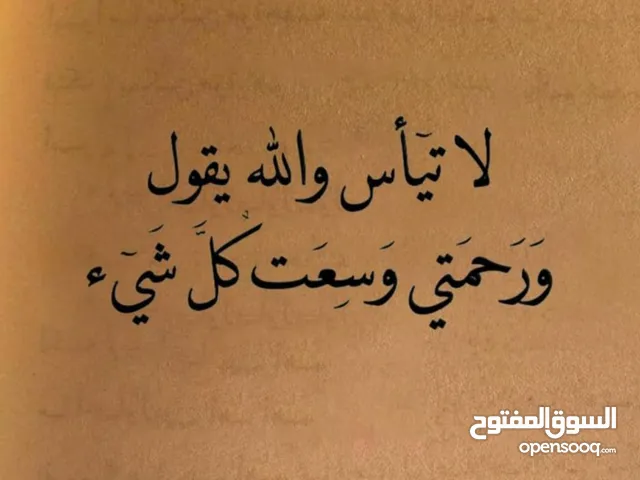 لا تيأس والله يقول
وَرَحمَتي وَسِعَت كُلَّ شَيء
السوق المفتوح
opensooq.com